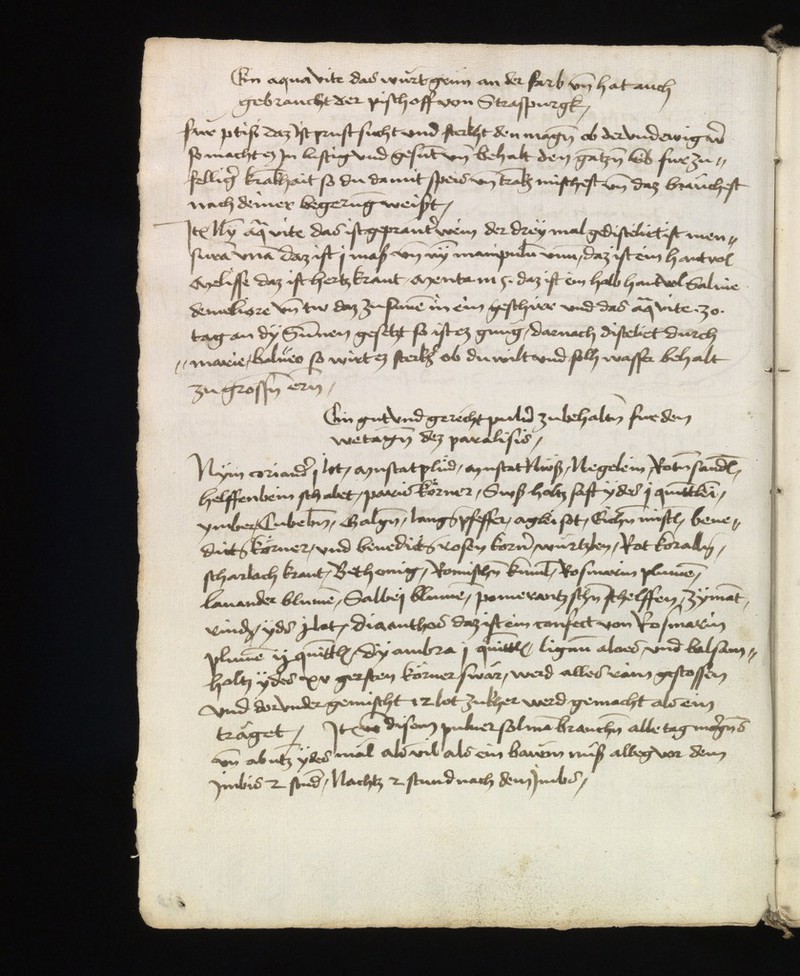 Ein aqua vite das wirt grün an der farb vn̄ hat auch
gebraucht der pischoff von Straspurgk
fur ptisi daz ist prust sucht vnd sterkht den magn̄ ob der vndewig wer
so macht es In lustig vnd gesunt vn̄ behalt den gantzn̄ leib fur zu=
fellig krankhait so du damit speis vn̄ trankh mischest vn̄ daz brauchest
nach deiner begerūg weist
Itē Nym aq̄ vite das ist geprantr̄ wein der drey mal gedistelirt ist men=
sura vna daz ist j mass vn̄ manipulū vnū, daz ist ein hantvol
Melisse daz ist hertzkraut menta daz ist ein halb hantvol Saluie
vn̄ tw daz zusame in ein geschirr vnd das aq̄ vite 30
tag an dy Sunnen gesetzt so ist es gnug, darnach distelirt durch
marie balneo so wirt es sterkhr̄ ob du wilt vnd solh wasser behalt
zu grossn̄ ern
Ein gut vnd gerecht puluer zu behaltn̄ fur den
wetagn̄ dez paralisis
Nym coriandr̄ j lot, muscat plüe, muscat Nuss, Negelein, Rotn̄ sandl,
helffenbein schabet, paris körner, Suss holtz saft ydes j quintlein,
ymber, Cubebn̄, Galgn̄, langs pfeffer, Eichn̄ mistl, bene=
dicts körner, vnd benedicts rosen korn̄ wurtzen, Rot koralln̄,
scharlach kraut, Bethonig, Romischn̄ kümel, Rosmarin plumē,
lauander blumē, Salbei blumē, pomerantzschn̄ schelffen, Zymāt
rindn̄, ydes lot, diaanthos daz ist ein confect von Rosmarin
plumē ij quintl, dyambra j quintl, lignū aloes vnd balsam=
holtz ydes xv gersten körner swär, werd alles rain gestossen
vnd dorunder gemischt 12 lot zukher werd gemacht als ein
träget, Itē disem puluer sol man brauchn̄ alle tag morgn̄s
vn̄ abntz ydes mal als vil als ein bawm nuss allweg vor dem
jmbis 2 stūd, Nachtz 2 stund nach dem Jmbs